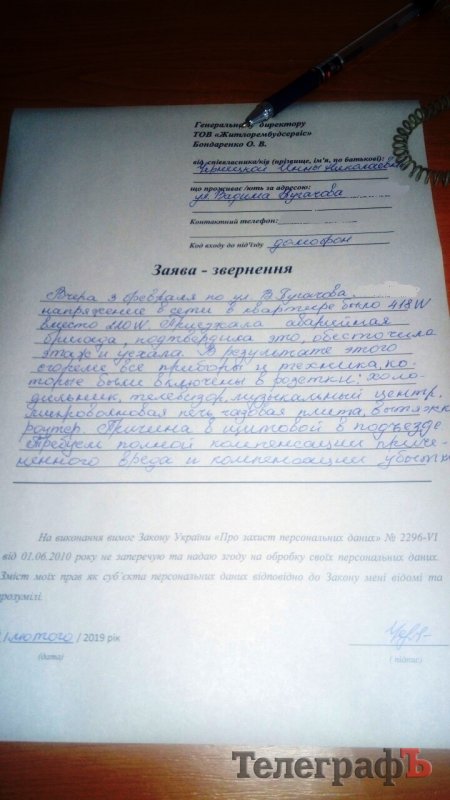 Генеральному директору
ТОВ «Житлорембудсервіс»
Бондаренко О. В.
від співвласника/ків (прізвище, ім'я, по батькові):
Инны Николаевны
що проживає /ють за адресою:
ул. Вадима Пугачова
Контактний телефон:
Код входу до під'їзду домофон
Заява - звернення
Вчера 3 февраля по ул В. Пугачова.
напряжение в сети в квартире было 418 W
вместо 220 W. Приезжала аварийная
бригада, подтвердила это, обесточила
этаж и уехала. В результате этого
сгорели все приборы и техника, ко-
торые были включены в розетки: холо-
дильник, телевизор, музыкальный центр,
микроволновая печь, газовая плита, вытяжка
роутер. Причина в щитовой в подъезде.
Требуем полной компенсации причи-
ненного вреда и компенсации убытк
На виконання вимог Закону України «Про захист персональних даних» № 2296-VI
від 01.06.2010 року не заперечую та надаю згоду на обробку своїх персональних даних.
Зміст моїх прав як суб'єкта персональних даних відповідно до Закону мені відомі та
зрозумілі.
лютого / 2019 рік
(дата) ( підпис)
ТелеграфЪ